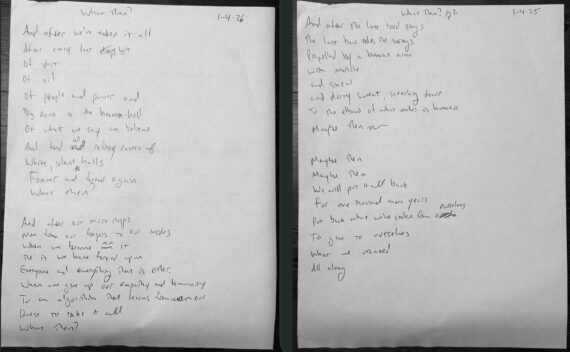 What Then?
1-4-26
And after we've taken it all
After every last bit
Of dirt
Of oil
Of people and power and
Dig down to the heaven-hell
Of what we say we believe
And find an infinity cavern of
White, silent halls
Forever and forever again
What then?
And after our microchips
Move from our fingers to our insides
When we become it
The it we have forced upon
Everyone and everything that is other.
When we give up our empathy and humanity
To an algorithm that learns from our
Quest to take it all
What Then?
What Then? p2
1-4-25
And after the last bird sings
The last bow the strings
Propelled by a human arm
With muscle
and sinew
and sweat, down
To the elbow of what makes us human
Maybe then
Maybe Then
Maybe Then
We will put it all back
For one-thousand more years
Put back what we've stolen from ourselves
To give to ourselves
What we wanted
All along